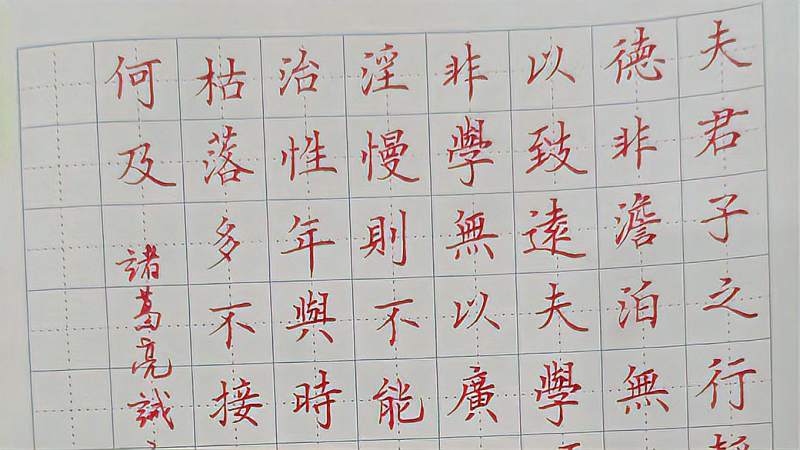 夫君子之行
德非澹泊無
以致遠夫學
非學無以廣
淫慢則不能
治性年與時
枯落多不接
何及
諸葛亮誡